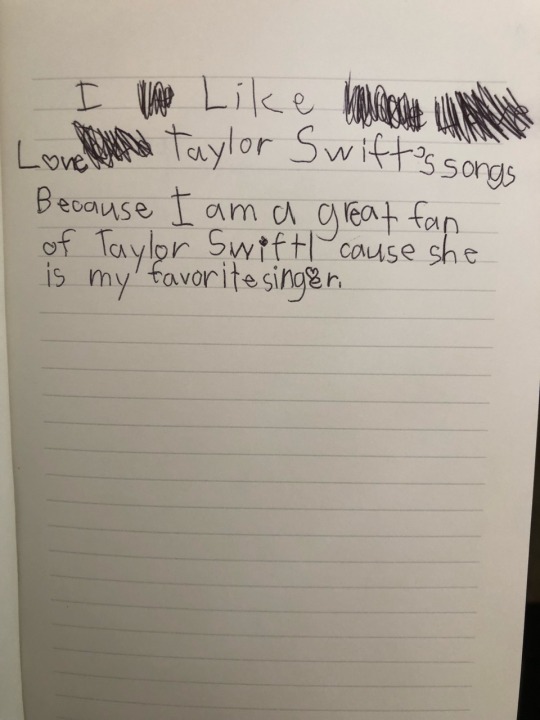 I Like
Love Taylor Swift's songs
Because I am a great fan
of Taylor Swift cause she
is my favorite singer.